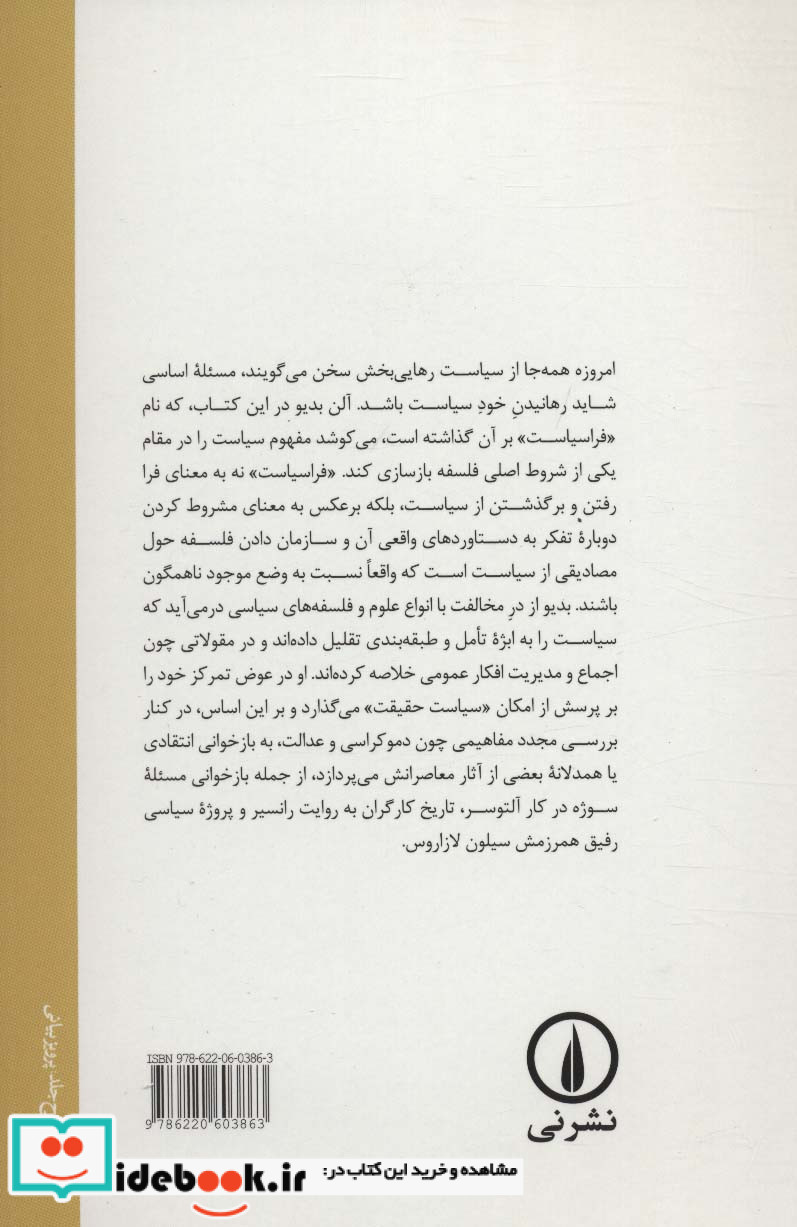 امروزه همه‌جا از سیاست رهایی‌بخش سخن می‌گویند، مسئلهٔ اساسی
شاید رهانیدنِ خودِ سیاست باشد. آلن بدیو در این کتاب، که نام
«فراسیاست» بر آن گذاشته است، می‌کوشد مفهوم سیاست را در مقام
یکی از شروط اصلی فلسفه بازسازی کند. «فراسیاست» نه به معنای فرا
رفتن و برگذشتن از سیاست، بلکه برعکس به معنای مشروط کردن
دوبارهٔ تفکر به دستاوردهای واقعی آن و سازمان دادن فلسفه حول
مصادیقی از سیاست است که واقعاً نسبت به وضع موجود ناهمگون
باشند. بدیو از درِ مخالفت با انواع علوم و فلسفه‌های سیاسی درمی‌آید که
سیاست را به ابژهٔ تأمل و طبقه‌بندی تقلیل داده‌اند و در مقولاتی چون
اجماع و مدیریت افکار عمومی خلاصه کرده‌اند. او در عوض تمرکز خود را
بر پرسش از امکان «سیاست حقیقت» می‌گذارد و بر این اساس، در کنار
بررسی مجدد مفاهیمی چون دموکراسی و عدالت، به بازخوانی انتقادی
یا همدلانهٔ بعضی از آثار معاصرانش می‌پردازد، از جمله بازخوانی مسئلهٔ
سوژه در کار آلتوسر، تاریخ کارگران به روایت رانسیر و پروژهٔ سیاسی
رفیق همرزمش سیلون لازاروس.
ISBN 978-622-06-0386-3
9 786220 603863
نشرنی
جلد: پرویز بیانی
مشاهده و خرید این کتاب در:
idebook.ir